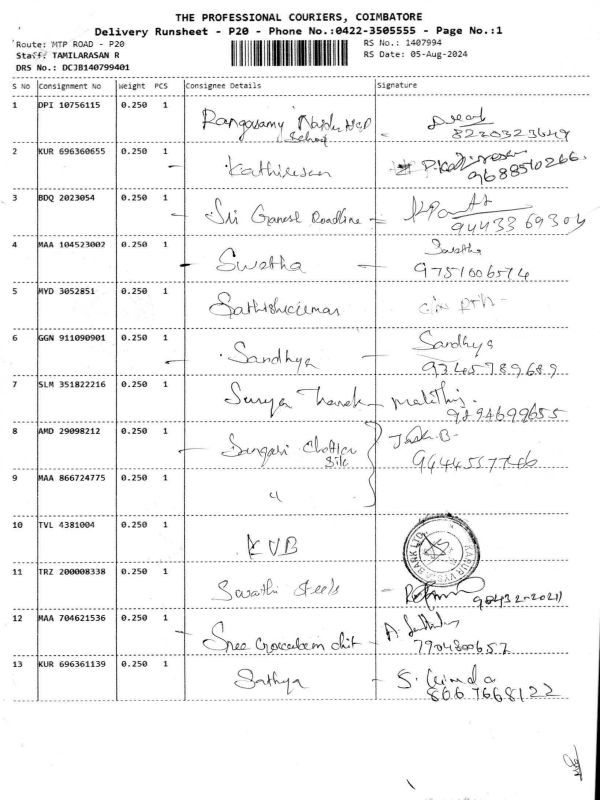 THE PROFESSIONAL COURIERS, COIMBATORE
Delivery Runsheet - P20 - Phone No.:0422-3505555 - Page No.:1
Route: MTP ROAD - P20
RS No.: 1407994
Staff: TAMILARASAN R
RS Date: 05-Aug-2024
DRS No.: DCJB140799401
S No Consignment No Weight PCS Consignee Details Signature
1 DPI 10756115 0.250 1 Rangasamy Naidu
8220323649
2 KUR 696360655 0.250 1 Kathiresan P.Kathiresan
9688510266
3 BDQ 2023054 0.250 1 Sri Ganesh Roadline
9443369304
4 MAA 104523002 0.250 1 Swetha Swetha
9751006574
5 MYD 3052851 0.250 1 Sathishkumar
6 GGN 911090901 0.250 1 Sandhya Sandhya
9345789689
7 SLM 351822216 0.250 1 Surya
9894699655
8 AMD 29098212 0.250 1
9 MAA 866724775 0.250 1 "
10 TVL 4381004 0.250 1 KVB
KARUR VYSYA BANK LTD
11 TRZ 200008338 0.250 1 Swathi Steels
90432-20211
12 MAA 704621536 0.250 1 Sree chit
7904800657
13 KUR 696361139 0.250 1 Sathya S.
8667668122